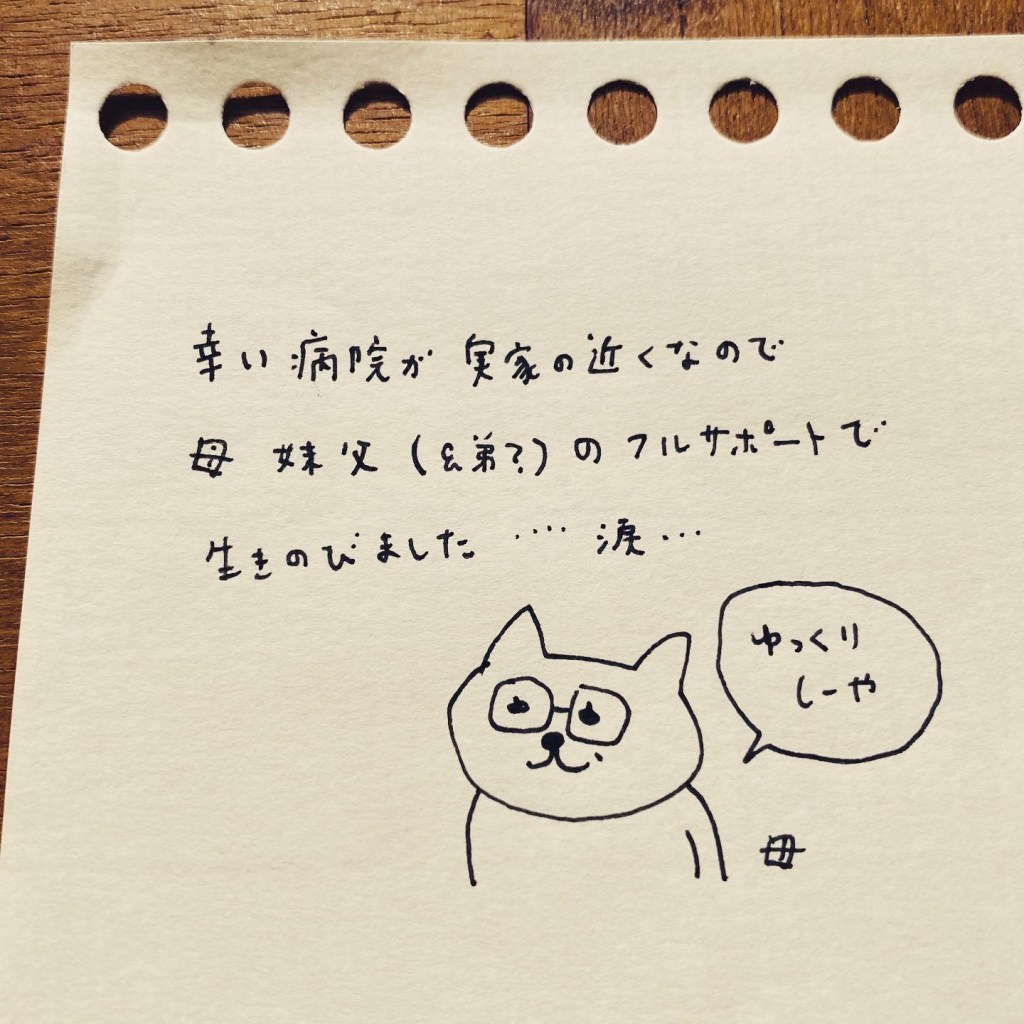 幸い 病院が 実家の近くなので
母 妹 父 (と弟?) のフルサポートで
生きのびました ‥‥ 涙…
ゆっくり
しーや
母